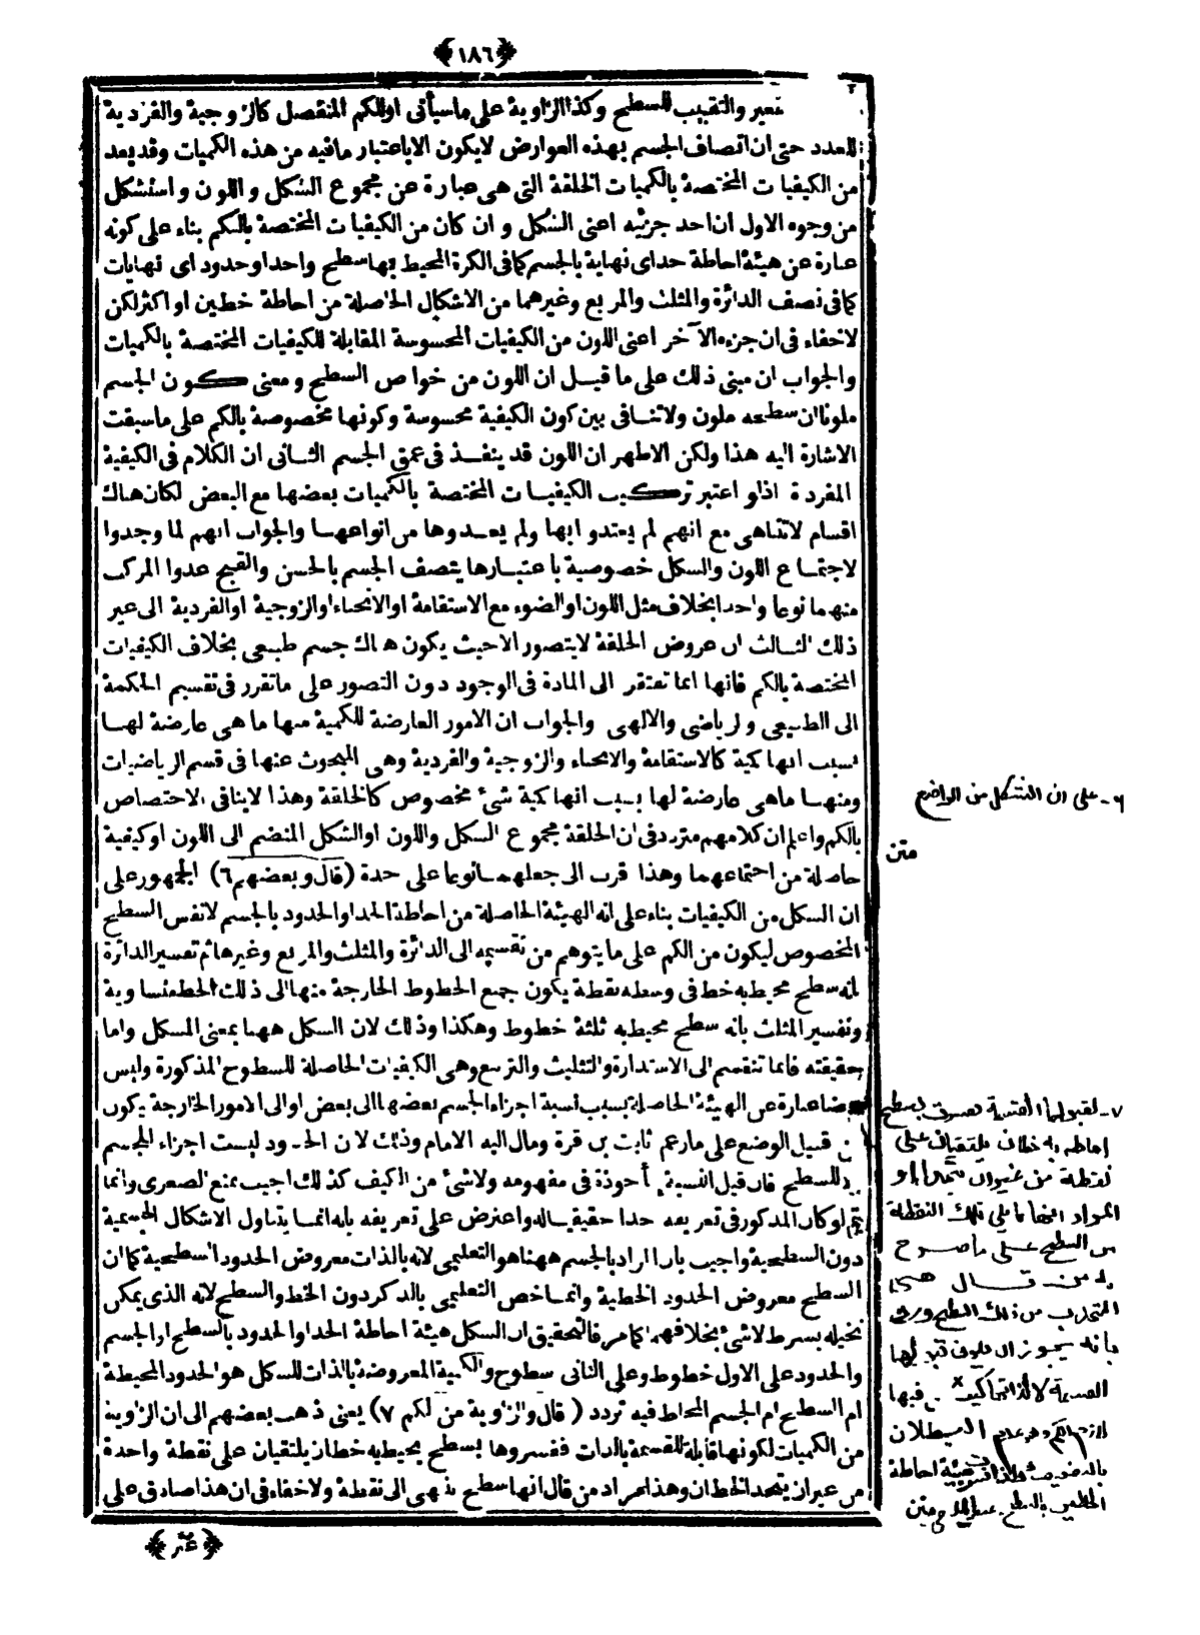 ﴿١٨٦﴾
قعير والتقبيب للسطح وكذا الزاوية على ما سيأتى او للكم المنفصل كالزوجية والفردية
للعدد حتى ان اتصاف الجسم بهذه العوارض لا يكون الا باعتبار ما فيه من هذه الكميات وقد يعد
من الكيفيات المختصة بالكميات الخلقة التى هى عبارة عن مجموع الشكل واللون واستشكل
من وجوه الاول ان احد جزئيه اعنى الشكل وان كان من الكيفيات المختصة بالكم بناء على كونه
عبارة عن هيئة احاطة حد اى نهاية بالجسم كما فى الكرة المحيط بها سطح واحد او حدود اى نهايات
كما فى نصف الدائرة والمثلث والمربع وغيرهما من الاشكال الحاصلة من احاطة خطين او اكثر لكن
لا خفاء فى ان جزءه الآخر اعنى اللون من الكيفيات المحسوسة المقابلة للكيفيات المختصة بالكميات
والجواب ان مبنى ذلك على ما قيل ان اللون من خواص السطح ومعنى كون الجسم
ملونا ان سطحه ملون ولا تنافى بين كون الكيفية محسوسة وكونها مخصوصة بالكم على ما سبقت
الاشارة اليه هذا ولكن الاظهر ان اللون قد ينفذ فى عمق الجسم الثانى ان الكلام فى الكيفية
المفردة اذ لو اعتبر تركيب الكيفيات المختصة بالكميات بعضها مع البعض لكان هناك
اقسام لا تتناهى مع انهم لم يعتدوا بها ولم يعدوها من انواعها والجواب انهم لما وجدوا
لاجتماع اللون والشكل خصوصية باعتبارها يتصف الجسم بالحسن والقبح عدوا المركب
منهما نوعا واحدا بخلاف مثل اللون او الضوء مع الاستقامة او الانحناء او الزوجية او الفردية الى غير
ذلك الثالث ان عروض الخلقة لا يتصور الا حيث يكون هناك جسم طبيعى بخلاف الكيفيات
المختصة بالكم فانها انما تفتقر الى المادة فى الوجود دون التصور على ما تقرر فى تقسيم الحكمة
الى الطبيعى والرياضى والالهى والجواب ان الامور العارضة للكمية منها ما هى عارضة لها
بسبب انها كمية كالاستقامة والانحناء والزوجية والفردية وهى المبحوث عنها فى قسم الرياضيات
ومنها ما هى عارضة لها بسبب انها كمية شئ مخصوص كالخلقة وهذا لا ينافى الاختصاص
بالكم واعلم ان كلامهم متردد فى ان الخلقة مجموع الشكل واللون او الشكل المنضم الى اللون او كيفية
حاصلة من اجتماعهما وهذا اقرب الى جعلهما نوعا على حدة (قال وبعضهم ٦) الجمهور على
ان الشكل من الكيفيات بناء على انه الهيئة الحاصلة من احاطة الحد او الحدود بالجسم لا نفس السطح
المخصوص ليكون من الكم على ما يتوهم من تقسيمه الى الدائرة والمثلث والمربع وغيرها ثم تفسير الدائرة
بانه سطح محيط به خط فى وسطه نقطة يكون جميع الخطوط الخارجة منها الى ذلك الخط متساوية
وتفسير المثلث بانه سطح محيط به ثلثة خطوط وهكذا وذلك لان الشكل ههنا بمعنى المشكل واما
حقيقته فانما تنقسم الى الاستدارة والتثليث والتربيع وهى الكيفيات الحاصلة للسطوح المذكورة وليس
ضا عبارة عن الهيئة الحاصلة بسبب نسبة اجزاء الجسم بعضها الى بعض او الى الامور الخارجة يكون
ن قبيل الوضع على ما زعم ثابت بن قرة ومال اليه الامام وذلك لان الحدود ليست اجزاء للجسم
للسطح فان قيل النسبة مأخوذة فى مفهومه ولا شئ من الكيف كذلك اجيب بمنع الصغرى وانما
يتم لو كان المذكور فى تعريفه حدا حقيقيا له واعترض على تعريفه بانه انما يتناول الاشكال الجسمية
دون السطحية واجيب بان المراد بالجسم ههنا هو التعليمى لانه بالذات معروض الحدود السطحية كما ان
السطح معروض الحدود الخطية وانما خص التعليمى بالذكر دون الخط والسطح لانه الذى يمكن
تخيله بشرط لا شئ بخلافهما كما مر فالتحقيق ان الشكل هيئة احاطة الحد او الحدود بالسطح او الجسم
والحدود على الاول خطوط وعلى الثانى سطوح والكمية المعروضة بالذات للشكل هو الحدود المحيطة
ام السطح ام الجسم المحاط فيه تردد (قال والزاوية من الكم ٧) يعنى ذهب بعضهم الى ان الزاوية
من الكميات لكونها قابلة للقسمة بالذات ففسروها بسطح يحيط به خطان يلتقيان على نقطة واحدة
من غير ان يتحد الخطان وهذا مراد من قال انها سطح ينتهى الى نقطة ولا خفاء فى ان هذا صادق على
٦- على ان الشكل من الوضع
متن
٧- لقبولها القسمة تعرف بسطح
احاط به خطان يلتقيان على
نقطة من غير ان يتحدا او
المراد انها ما يلى تلك النقطة
من السطح على ما صرح
به من قال هى
المتحدب من ذلك السطح ورد
بانه يجوز ان يكون قبولها
القسمة لا لذاتها كيف
البطلان
هيئة احاطة
الخطين بالسطح متن